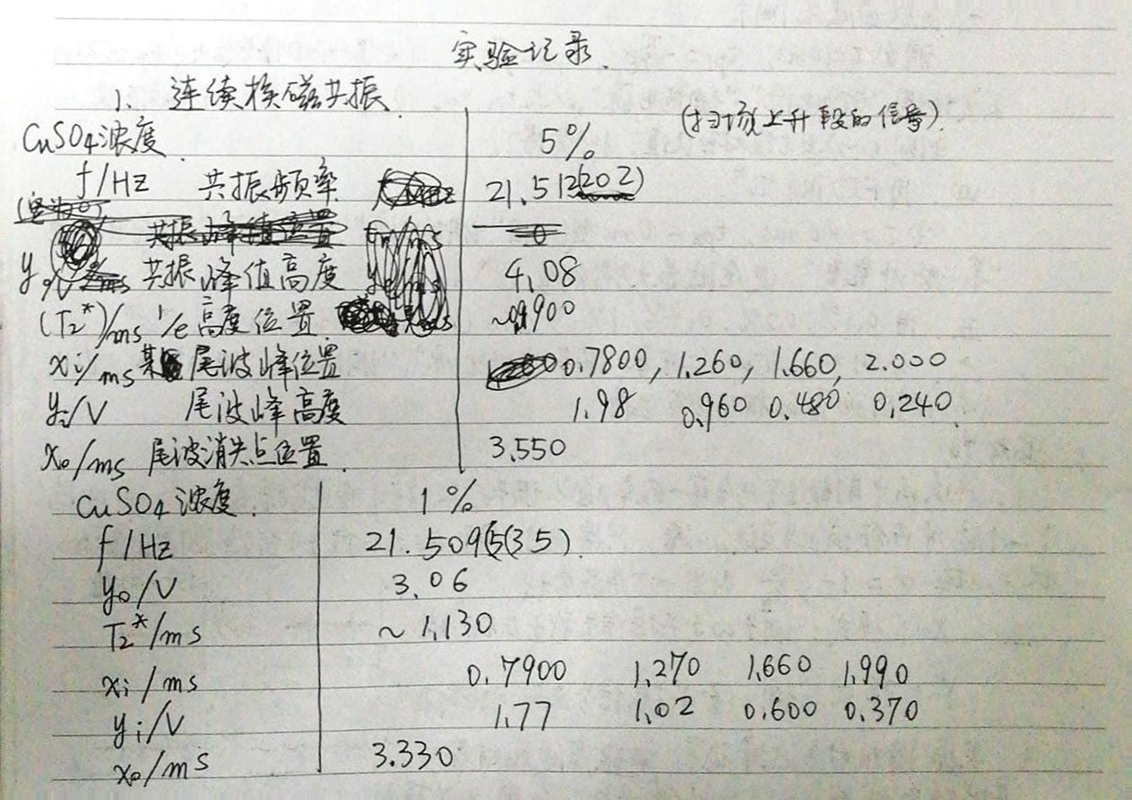 实验记录.
1. 连续核磁共振
(扫场上升段的信号).
CuSO4浓度. 5%
f/Hz 共振频率 21.512(202)
共振峰值位置 0
y0/V 共振峰值高度 4.08
(T2*)/ms 1/e高度位置 ~0.900
xi/ms 尾波峰位置 0.7800, 1.260, 1.660, 2.000
yi/V 尾波峰高度 1.98 0.960 0.480 0.240.
x0/ms 尾波消失点位置. 3.550
CuSO4浓度. 1%
f/Hz 21.509(535).
y0/V 3.06
T2*/ms ~1.130
xi/ms 0.7900 1.270 1.660 1.990
yi/V 1.77 1.02 0.600 0.370
x0/ms 3.330